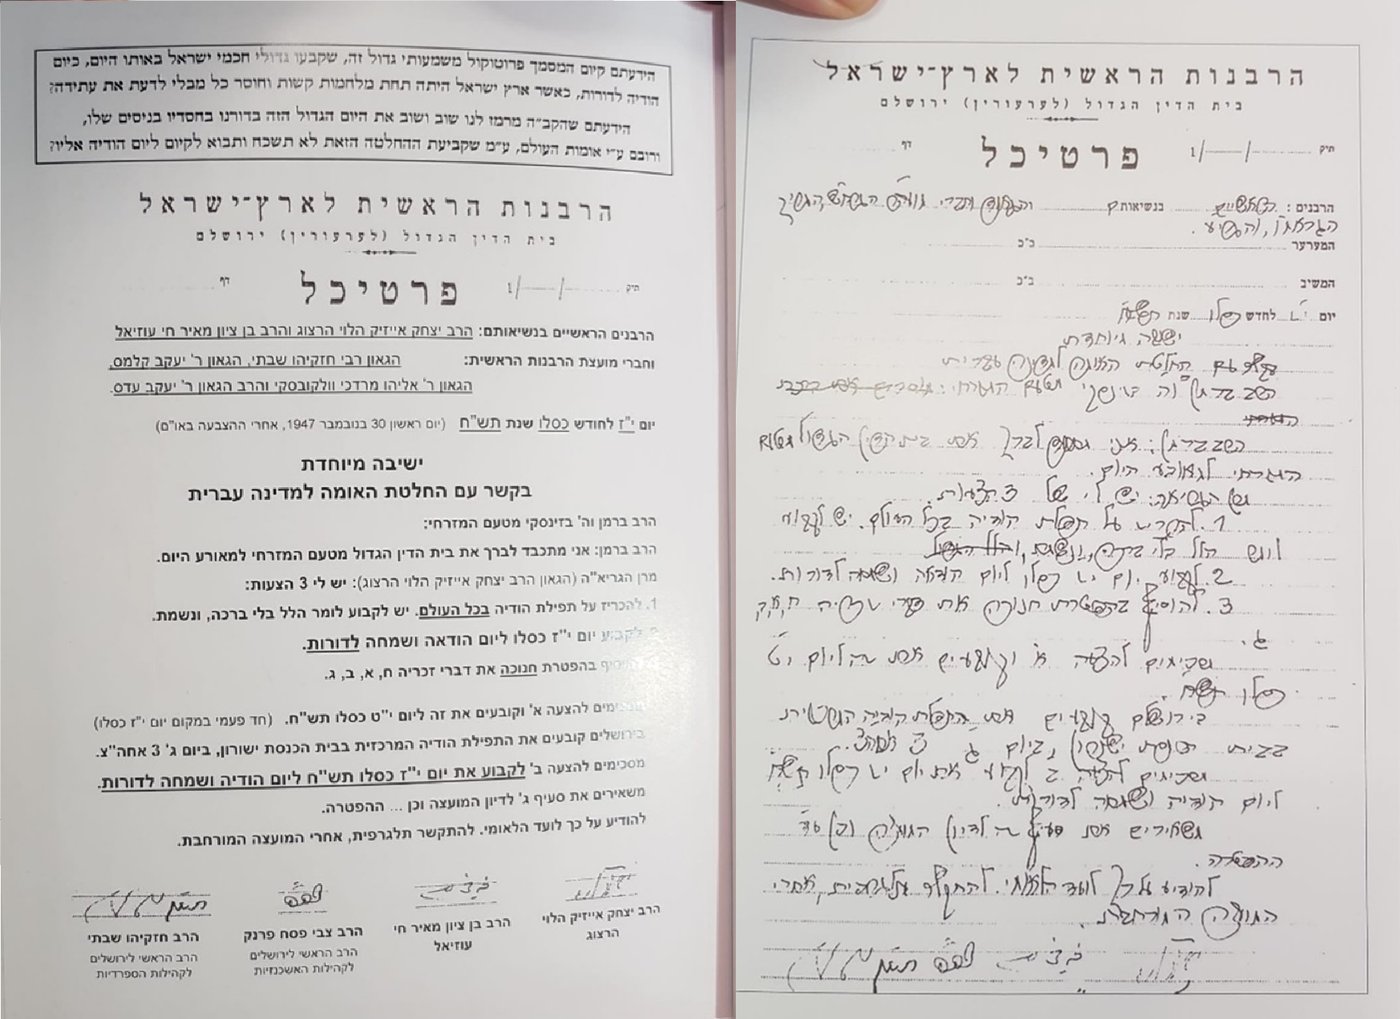 הרבנות הראשית לארץ־ישראל
בית הדין הגדול (לערעורין) ירושלם
תיק /—/1 פרטיכל דף
הרבנים : הראשיים בנשיאות וחברי
המערער ב"כ
המשיב ב"כ
יום י"ז לחדש כסלו שנת תש"ח
ישיבה מיוחדת
בקשר עם החלטת האומה למדינה עברית
הרב ברמן וה' בזינסקי מטעם המזרחי:
הרב ברמן: אני מתכבד לברך את בית הדין הגדול מטעם
המזרחי למאורע היום.
יש לי 3 הצעות
1. להכריז על תפלת הודיה בכל העולם. יש לקבוע
הלל בלי ברכה, ונשמת,
2. לקבוע יום י"ז כסלו ליום הודאה ושמחה לדורות.
3. להוסיף בהפטרת חנוכה את דברי זכריה ח, א, ב,
ג.
מסכימים להצעה א' וקובעים את זה ליום י"ט
כסלו תש"ח.
בירושלם קובעים את התפלת הודיה המרכזית
בבית הכנסת ישרון, ביום ג' 3 אחה"צ.
מסכימים להצעה ב' לקבוע את יום י"ז כסלו תש"ח
ליום הודיה ושמחה לדורות.
משאירים את סעיף ג' לדיון המועצה וכן
ההפטרה.
להודיע על כך לועד הלאומי. להתקשר תלגרפית, אחרי
המועצה המורחבת.
הידעתם קיום המסמך פרוטוקול משמעותי גדול זה, שקבעו גדולי חכמי ישראל באותו היום, כיום
הודיה לדורות, כאשר ארץ ישראל היתה תחת מלחמות קשות וחוסר כל מבלי לדעת את עתידה?
הידעתם שהקב״ה מרמז לנו שוב ושוב את היום הגדול הזה בדורנו בחסדיו בניסים שלו,
ורובם ע״י אומות העולם, ע״מ שקביעת ההחלטה הזאת לא תשכח ותבוא לקיום ליום הודיה אליו?
הרבנות הראשית לארץ־ישראל
בית הדין הגדול (לערעורין) ירושלם
תיק /—/1 פרטיכל דף
הרבנים הראשיים בנשיאותם: הרב יצחק אייזיק הלוי הרצוג והרב בן ציון מאיר חי עוזיאל
וחברי מועצת הרבנות הראשית: הגאון רבי חזקיהו שבתי, הגאון ר' יעקב קלמס,
הגאון ר' אליהו מרדכי וולקובסקי והרב הגאון ר' יעקב עדס.
יום י"ז לחודש כסלו שנת תש"ח (יום ראשון 30 בנובמבר 1947, אחרי ההצבעה באו"ם)
ישיבה מיוחדת
בקשר עם החלטת האומה למדינה עברית
הרב ברמן וה' בזינסקי מטעם המזרחי:
הרב ברמן: אני מתכבד לברך את בית הדין הגדול מטעם המזרחי למאורע היום.
מרן הגריא"ה (הגאון הרב יצחק אייזיק הלוי הרצוג): יש לי 3 הצעות:
1. להכריז על תפילת הודיה בכל העולם. יש לקבוע לומר הלל בלי ברכה, ונשמת.
2. לקבוע יום י"ז כסלו ליום הודאה ושמחה לדורות.
להוסיף בהפטרת חנוכה את דברי זכריה ח, א, ב, ג.
מסכימים להצעה א' וקובעים את זה ליום י"ט כסלו תש"ח. (חד פעמי במקום יום י"ז כסלו)
בירושלים קובעים את התפילת הודיה המרכזית בבית הכנסת ישורון, ביום ג' 3 אחה"צ.
מסכימים להצעה ב' לקבוע את יום י"ז כסלו תש"ח ליום הודיה ושמחה לדורות.
משאירים את סעיף ג' לדיון המועצה וכן ... ההפטרה.
להודיע על כך לועד הלאומי. להתקשר תלגרפית, אחרי המועצה המורחבת.
הרב יצחק אייזיק הלוי הרצוג
הרב בן ציון מאיר חי עוזיאל
הרב צבי פסח פרנק
הרב הראשי לירושלים
לקהילות האשכנזיות
הרב חזקיהו שבתי
הרב הראשי לירושלים
לקהילות הספרדיות